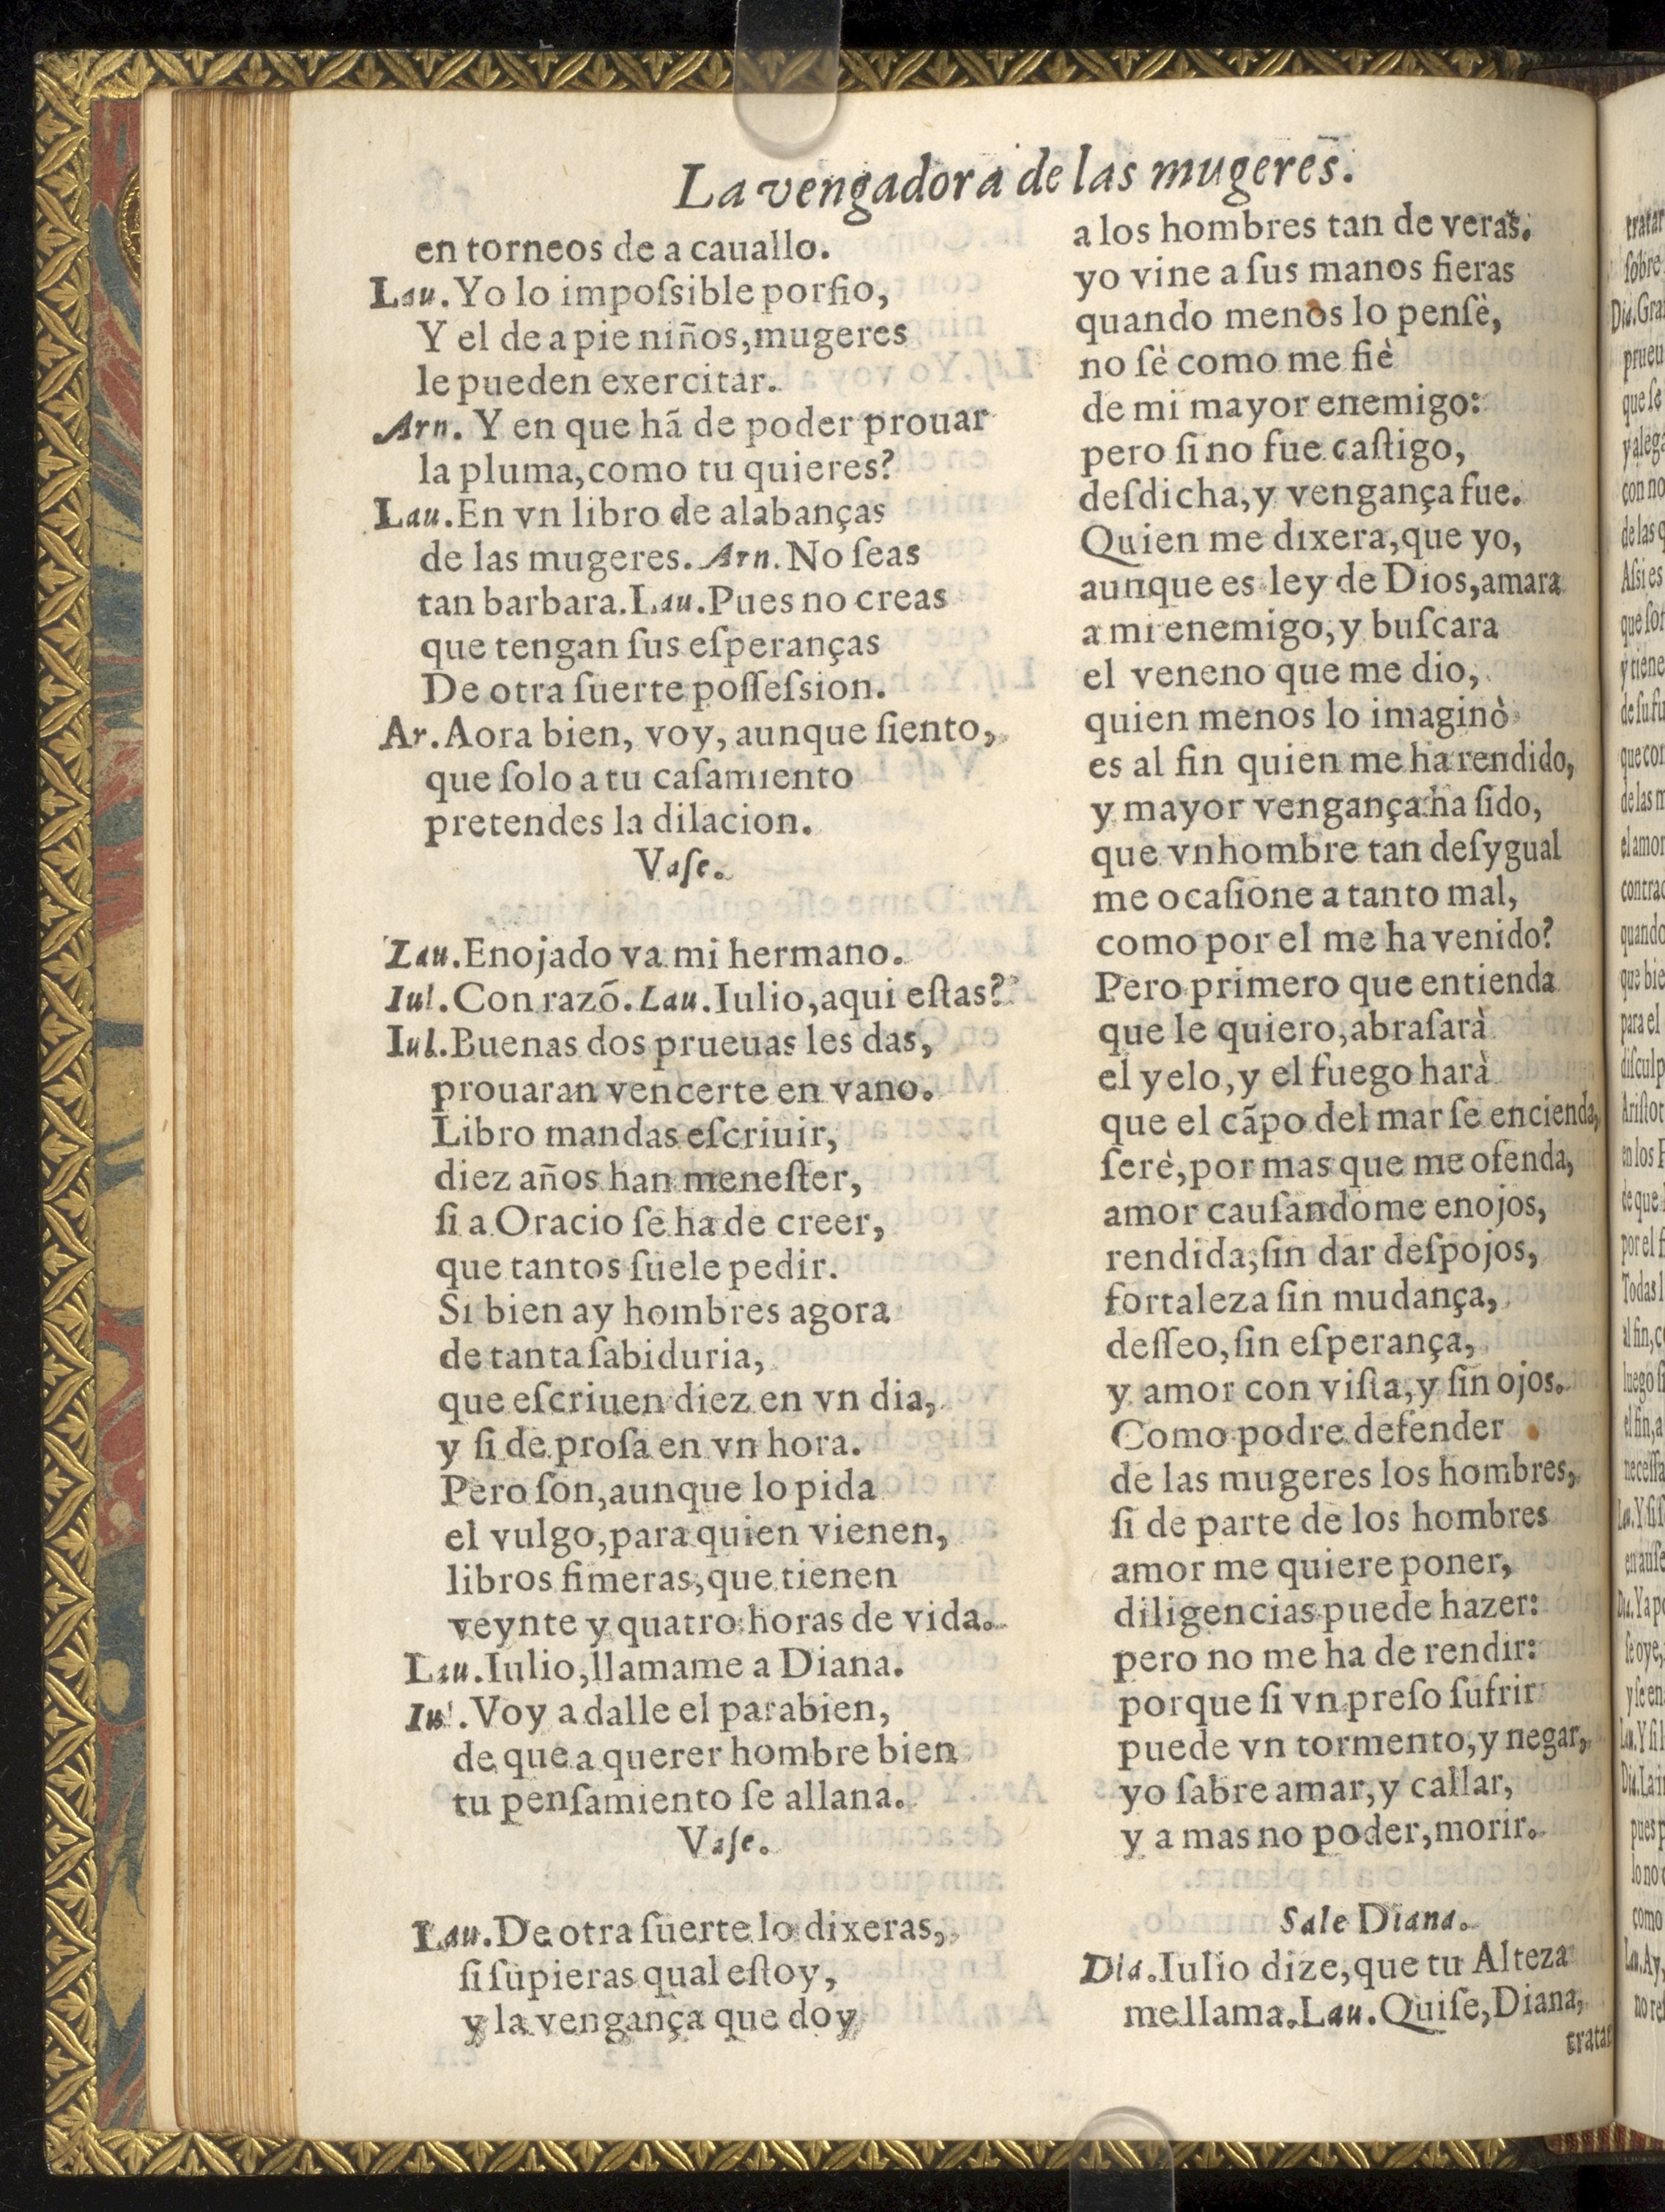 La vengadora de las mugeres.
en torneos de a cauallo.
Lau. Yo lo impoſsible porfio,
Y el de a pie niños, mugeres
le pueden exercitar.
Arn. Y en que hã de poder prouar
la pluma, como tu quieres?
Lau. En vn libro de alabanças
de las mugeres. Arn. No ſeas
tan barbara. Lau. Pues no creas
que tengan ſus eſperanças
De otra ſuerte poſſeſsion.
Ar. Aora bien, voy, aunque ſiento,
que ſolo a tu caſamiento
pretendes la dilacion.
Vaſe.
Lau. Enojado va mi hermano.
Iul. Con razõ. Lau. Iulio, aqui eſtas?
Iul. Buenas dos prueuas les das,
prouaran vencerte en vano.
Libro mandas eſcriuir,
diez años han meneſter,
ſi a Oracio ſe ha de creer,
que tantos ſuele pedir.
Si bien ay hombres agora
de tanta ſabiduria,
que eſcriuen diez en vn dia,
y ſi de proſa en vn hora.
Pero ſon, aunque lo pida
el vulgo, para quien vienen,
libros fimeras, que tienen
veynte y quatro horas de vida.
Lau. Iulio, llamame a Diana.
Iul. Voy a dalle el parabien,
de que a querer hombre bien
tu penſamiento ſe allana.
Vaſe.
Lau. De otra ſuerte lo dixeras,
ſi ſupieras qual eſtoy,
y la vengança que doy
a los hombres tan de veras.
yo vine a ſus manos fieras
quando menos lo penſè,
no ſè como me fiè
de mi mayor enemigo:
pero ſi no fue caſtigo,
deſdicha, y vengança fue.
Quien me dixera, que yo,
aunque es ley de Dios, amara
a mi enemigo, y buſcara
el veneno que me dio,
quien menos lo imaginò
es al fin quien me ha rendido,
y mayor vengança ha ſido,
que vn hombre tan deſygual
me ocaſione a tanto mal,
como por el me ha venido?
Pero primero que entienda
que le quiero, abraſarà
el yelo, y el fuego harà
que el cãpo del mar ſe encienda,
ſerè, por mas que me ofenda,
amor cauſandome enojos,
rendida, ſin dar deſpojos,
fortaleza ſin mudança,
deſſeo, ſin eſperança,
y amor con viſta, y ſin ojos.
Como podre defender
de las mugeres los hombres,
ſi de parte de los hombres
amor me quiere poner,
diligencias puede hazer:
pero no me ha de rendir:
porque ſi vn preſo ſufrir
puede vn tormento, y negar,
yo ſabre amar, y callar,
y a mas no poder, morir.
Sale Diana.
Dia. Iulio dize, que tu Alteza
me llama. Lau. Quiſe, Diana,
tratar